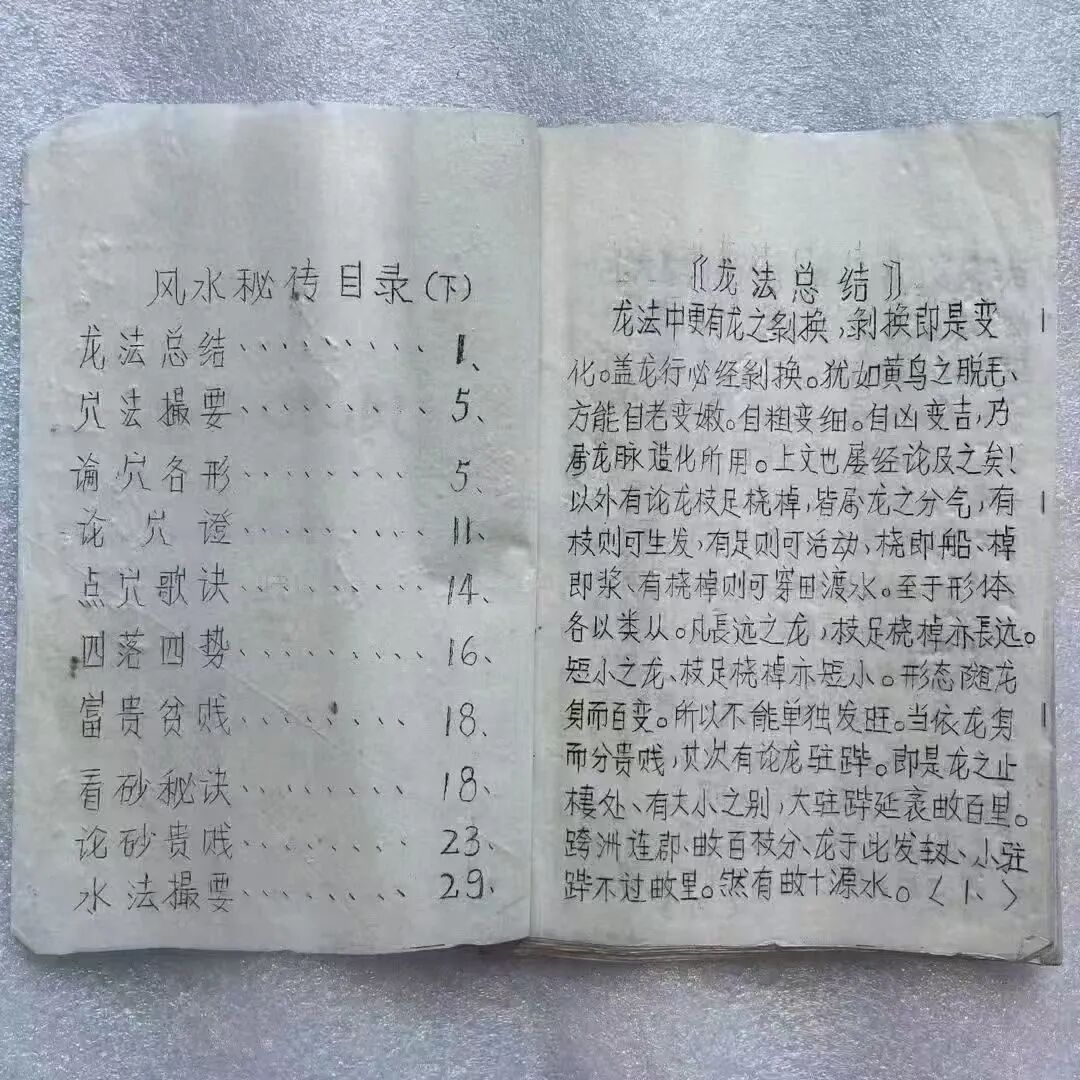 风水秘传目录(下)
龙法总结、、、、、、、、、1、
穴法撮要、、、、、、、、、5、
谕穴各形、、、、、、、、、5、
论穴證、、、、、、、、、11、
点穴歌诀、、、、、、、、、14、
四落四势、、、、、、、、、16、
富贵贫贱、、、、、、、、18、
看砂秘诀、、、、、、、、18、
论砂贵贱、、、、、、、、23、
水法撮要、、、、、、、、29、
《龙法总结》
龙法中更有龙之剝换,剝换即是变
化。盖龙行必经剝换。犹如黄鸟之脱毛、
方能自老变嫩。自粗变细。自凶变吉,乃
属龙脉造化所用。上文也屡经论及之矣!
以外有论龙枝足桡棹,皆属龙之分气,有
枝则可生发,有足则可活动、桡即船、棹
即浆、有桡棹则可穿田渡水。至于形体
各以类从。凡長远之龙,枝足桡棹亦長远。
短小之龙、枝足桡棹亦短小。形态随龙
身而百变。所以不能单独发旺。当依龙身
而分贵贱,其次有论龙驻跸。即是龙之止
棲处、有大小之别,大驻跸延袤百里。
跨洲连郡、百枝分、龙于此发、小驻
跸不过里。然有十源水。〈1、〉